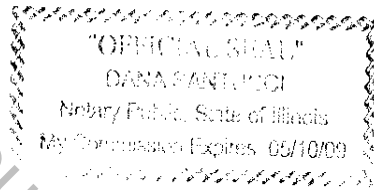 "OFFICIAL SEAL"
DANA SANTUCCI
Notary Public, State of Illinois
My Commission Expires 05/10/09